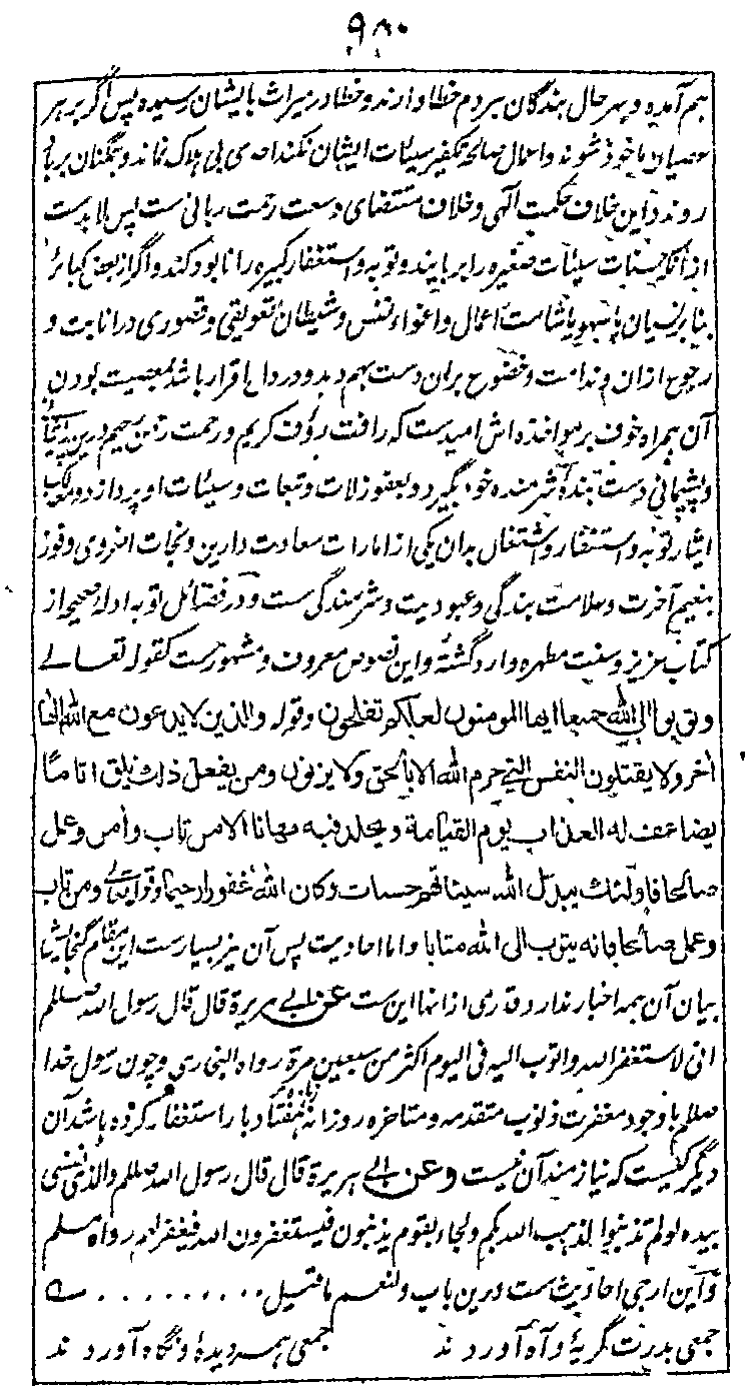 ۹۸۰
بہم آمدہ و بہر حال بندگان مردم خطا دارند و خطا در میراث بایشان رسیدہ پس اگر بر ہر
عصیان ماخوذ شوند و اعمال صالحہ تکفیر سیئات ایشان نکند احدی بی ہلاک نماند و ہمگنان برباد
روند و این خلاف حکمت الٰہی و خلاف مقتضای وسعت رحمت ربانی ست پس لابدست
از آنکہ حسنات سیئات صغیرہ را بربایند و توبہ و استغفار کبیرہ را نابود کند و اگر از بعض کبائر
بنا بر نسیان یا سہو یا شامت اعمال و اغواء نفس و شیطان تعویقی و قصوری در انابت و
رجوع ازان و ندامت و خضوع بران دست بہم دہد و در دل اقرار باشد بمعصیت بودن
آن ہمراہ خوف بر مواخذہ اش امیدست کہ رافت رؤف کریم و رحمت رحمن رحیم درین
و پشیمانی دست بندۂ شرمندہ خود بگیرد و بعفو زلات و تبعات و سیئات او پردازد و
ایثار توبہ و استغفار و اشتغال بدان یکی از امارات سعادت دارین و نجات اخروی و فوز
بنعیم آخرت و علامت بندگی و عبودیت و شرمندگی ست و در فضائل توبہ ادلۂ صحیحہ از
کتاب عزیز و سنت مطہرہ وارد گشتہ و این نصوص معروف و مشہورست کقولہ تعالے
وتوبوا الی اللہ جمیعا ایہا المومنون لعلکم تفلحون وقولہ والذین لا یدعون مع اللہ الٰہا
اٰخر ولا یقتلون النفس التی حرم اللہ الا بالحق ولا یزنون ومن یفعل ذلک یلق اثاما
یضاعف لہ العذاب یوم القیامۃ ویخلد فیہ مہانا الا من تاب واٰمن وعمل
صالحا فاولئک یبدل اللہ سیئاتہم حسنات وکان اللہ غفورا رحیما وقولہ تعالے ومن تاب
وعمل صالحا فانہ یتوب الی اللہ متابا واما احادیث پس آن نیز بسیارست این مقام گنجایش
بیان آن ہمہ اخبار ندارد و قدری ازانہا این ست عن ابی ہریرۃ قال قال رسول اللہ صللم
انی لاستغفر اللہ واتوب الیہ فی الیوم اکثر من سبعین مرۃ رواہ البخاری و چون رسول خدا
صللم با وجود مغفرت ذنوب متقدمہ و متاخرہ روزانہ ہفتاد بار استغفار کردہ باشد آن
دیگر کیست کہ نیازمند آن نیست وعن ابی ہریرۃ قال قال رسول اللہ صللم والذی نفسی
بیدہ لو لم تذنبوا لذہب اللہ بکم ولجاء بقوم یذنبون فیستغفرون اللہ فیغفر لہم رواہ مسلم
و این ارجی احادیث ست درین باب ولنعم ما قیل ......... ــہ
جمعی بدرت گریۂ و آہ آوردند جمعی ہمہ دیدۂ و نگاہ آوردند